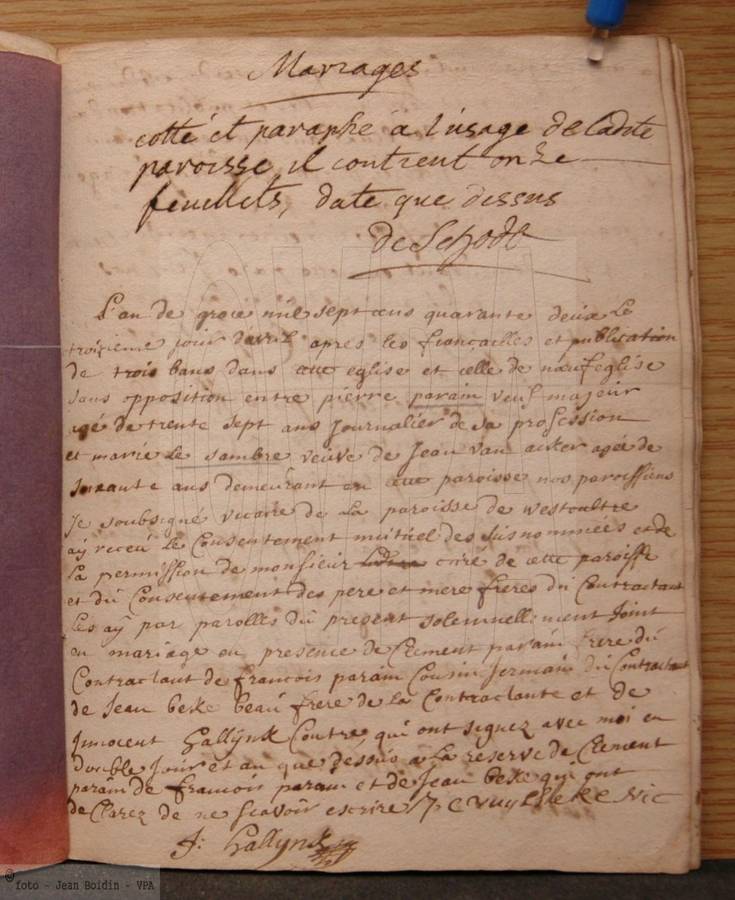 Mariages
cotté et paraphé a l'usage de ladite
paroisse, il contient onze
feuillets, date que dessus
DeSchodt
L'an de grace mil sept cens quarante deux Le
troisieme jour davril apres les fiançailles et publication
de trois bans dans cette eglise et celle de neufeglise
sans opposition entre pierre parain veuf majeur
agé de trente sept ans Journalier de sa profession
et marie Le sambre veuve de Jean van acker agée de
soixante ans demeurant en cette paroisse nos paroissiens
Je soubsigné vicaire de la paroisse de westoultre
aÿ receu Le Consentement mutuel des susnommées et de
la permission de monsieur curé de cette paroisse
et du Consentement des pere et mere freres du Contractant
Les aÿ par parolles du present solemnellement Joint
en mariage en presence de Clement parain frere du
Contractant de francois parain Cousin Jermain du Contractant
de Jean beke beau frere de la Contractante et de
Innocent Gallÿnk Contre, qui ont signez avec moi en
double Jour et an que Dessus a La reserve de Clement
parain de francois parain et de Jean beke qui ont
declarez de ne scavoir escrire vuylsteke vic
J: Gallynk
@
foto - Jean Boidin - VPA